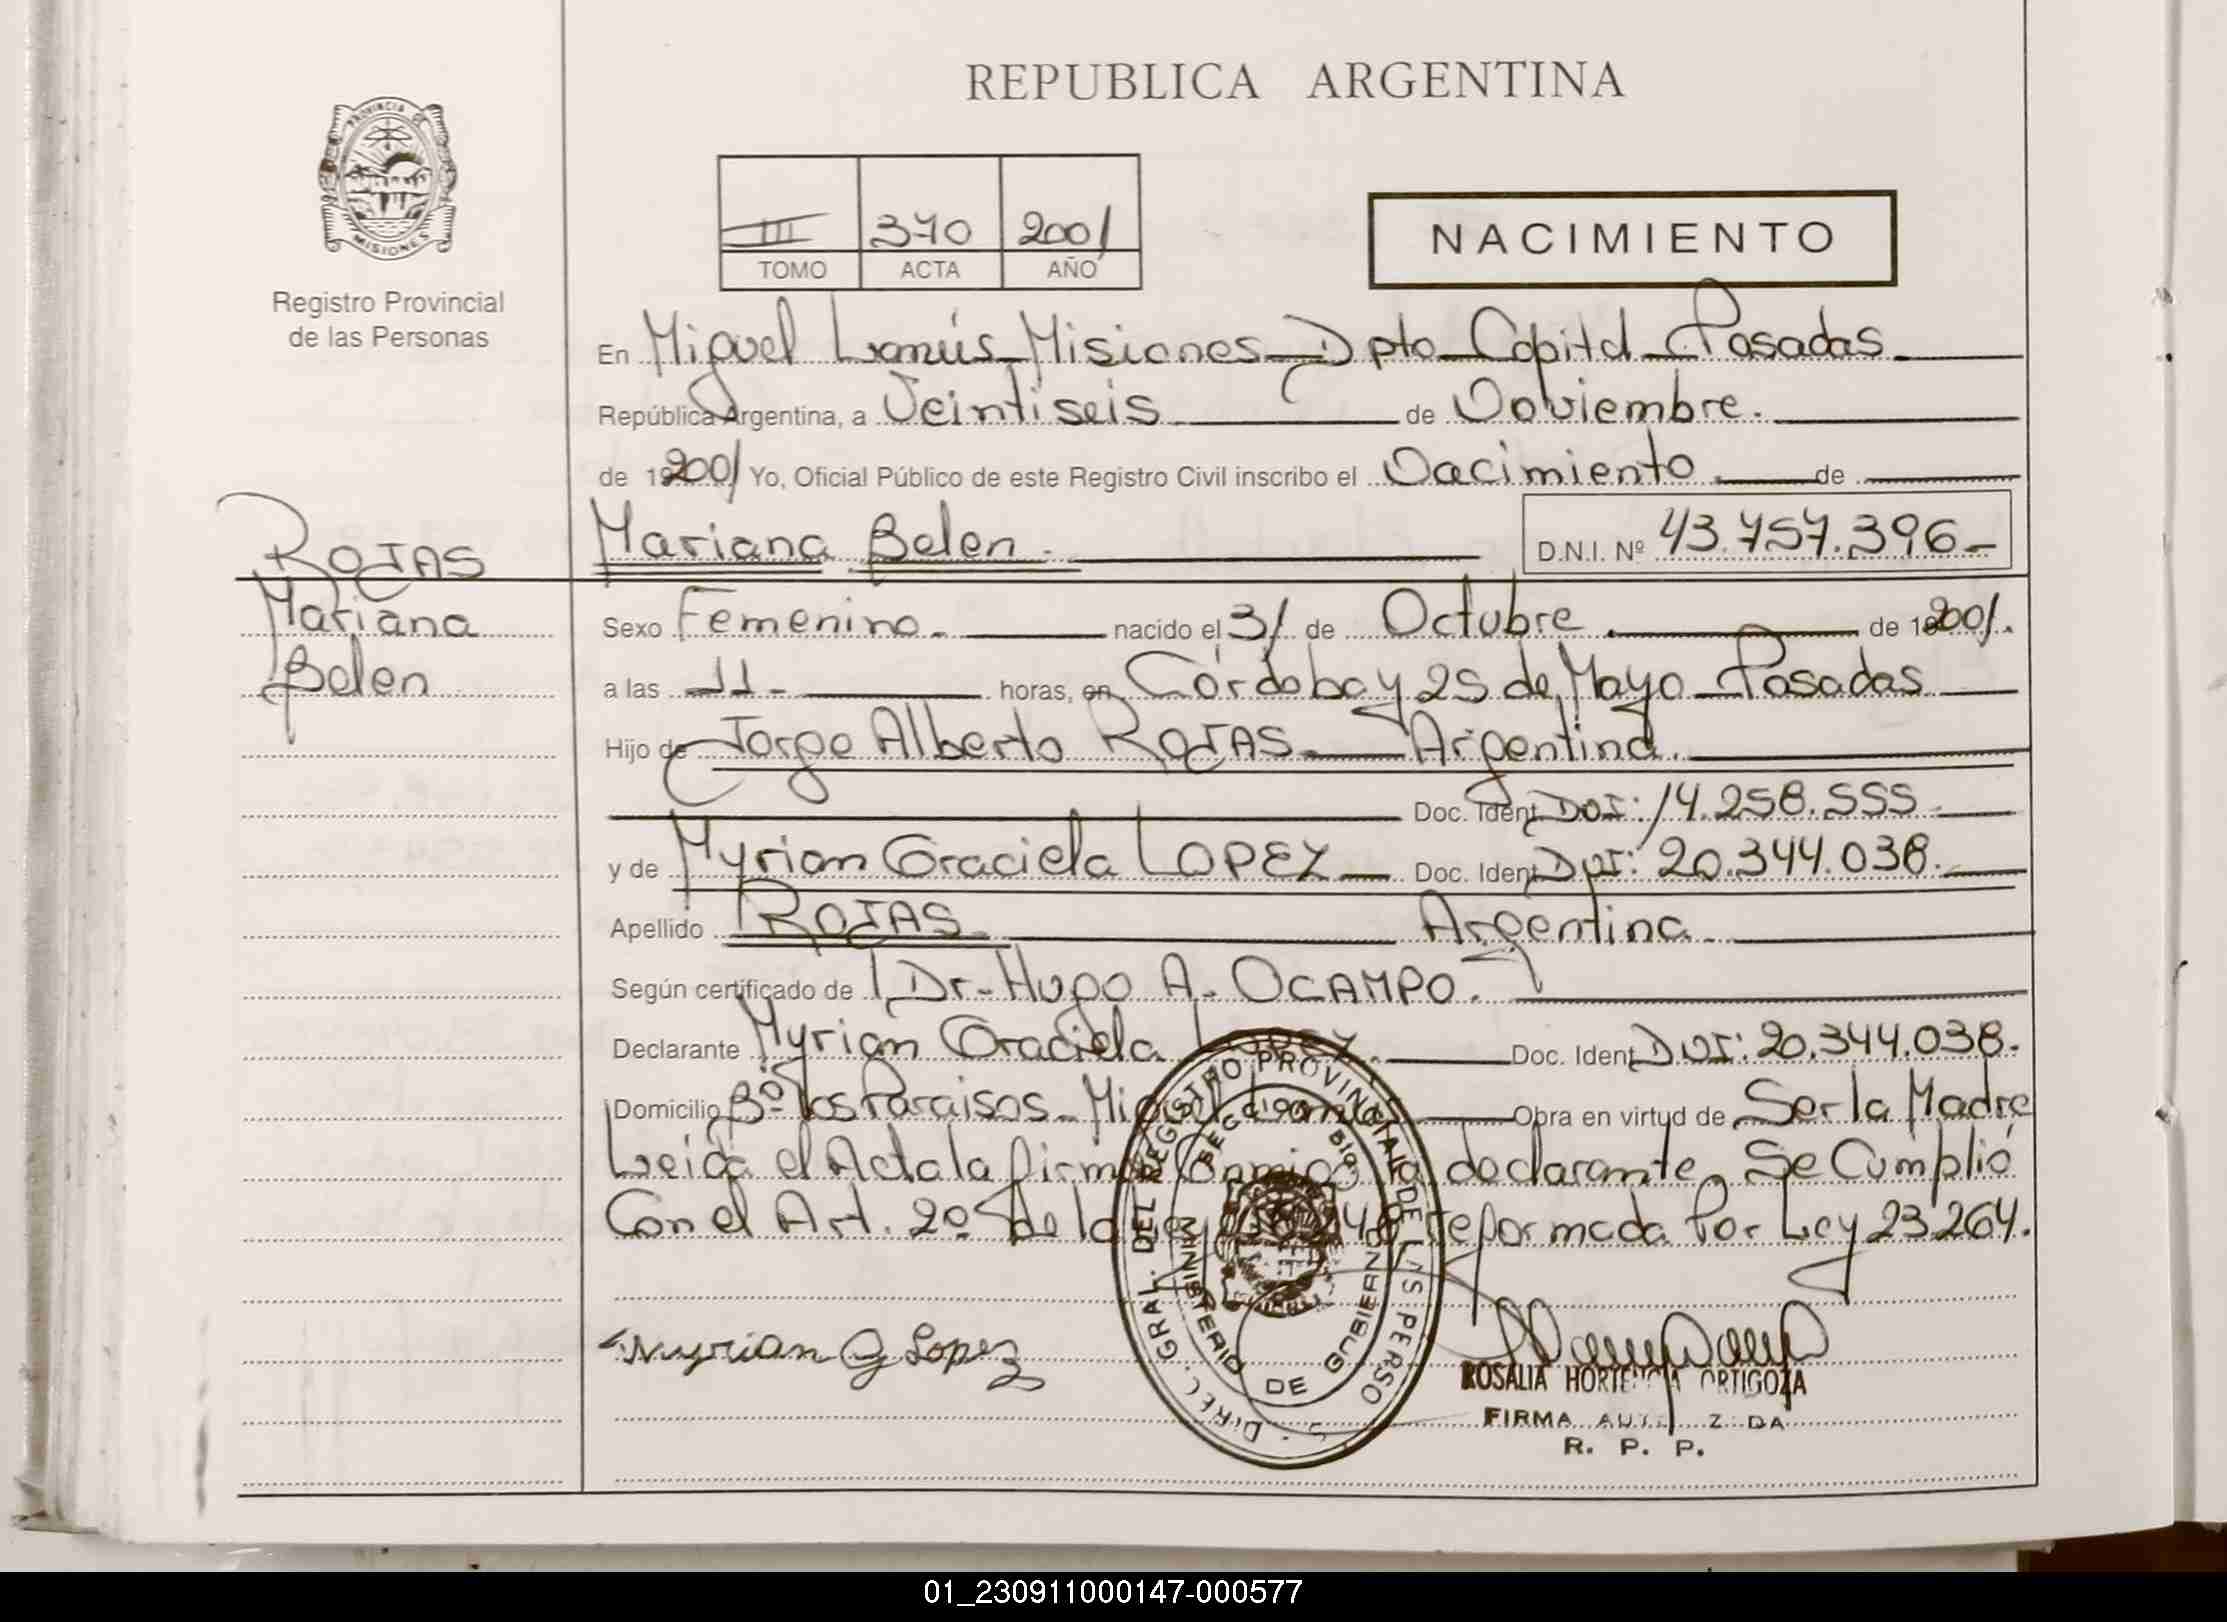 REPUBLICA ARGENTINA
PROVINCIA DE
MISIONES
Registro Provincial
de las Personas
III 370 2001
TOMO ACTA AÑO
NACIMIENTO
En Miguel Lanús - Misiones - Dpto Capital - Posadas.
República Argentina, a Veintiseis de Noviembre.
de 2001 Yo, Oficial Público de este Registro Civil inscribo el Nacimiento de
ROJAS
Mariana
Belen
Mariana Belen. D.N.I. Nº 43.757.396-
Sexo Femenino. nacido el 31 de Octubre. de 2001.
a las 11- horas, en Córdoba y 25 de Mayo - Posadas
Hijo de Jorge Alberto ROJAS Argentina.
Doc. Ident. DNI: 14.258.555
y de Myrian Graciela LOPEZ Doc. Ident. DNI: 20.344.038.
Apellido ROJAS Argentina.
Según certificado de Dr. Hugo A. OCAMPO.
Declarante Myrian Graciela LOPEZ. Doc. Ident. DNI: 20.344.038.
Domicilio Bº Los Paraisos - Miguel Lanús Obra en virtud de Ser la Madre
Leida el Acta la firma Conmigo la declarante, Se Cumplió
Con el Art. 2º de la Ley reformada Por Ley 23264.
DIREC. GRAL. DEL REGISTRO PROVINCIAL DE LAS PERSONAS
MINISTERIO DE GOBIERNO
Myrian G Lopez
ROSALIA HORTENCIA ORTIGOZA
FIRMA AUTORIZADA
R. P. P.
01_230911000147-000577